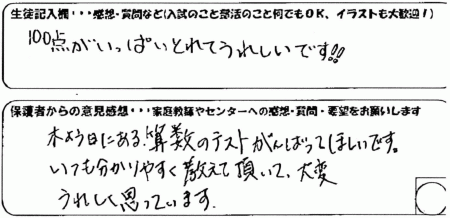 生徒記入欄・・・感想・質問など(入試のこと部活のこと何でもOK、イラストも大歓迎!)
100点がいっぱいとれてうれしいです!!
保護者からの意見感想・・・家庭教師やセンターへの感想・質問・要望をお願いします
木よう日にある、算数のテストがんばってほしいです。
いつも分かりやすく教えて頂いて、大変
うれしく思っています。